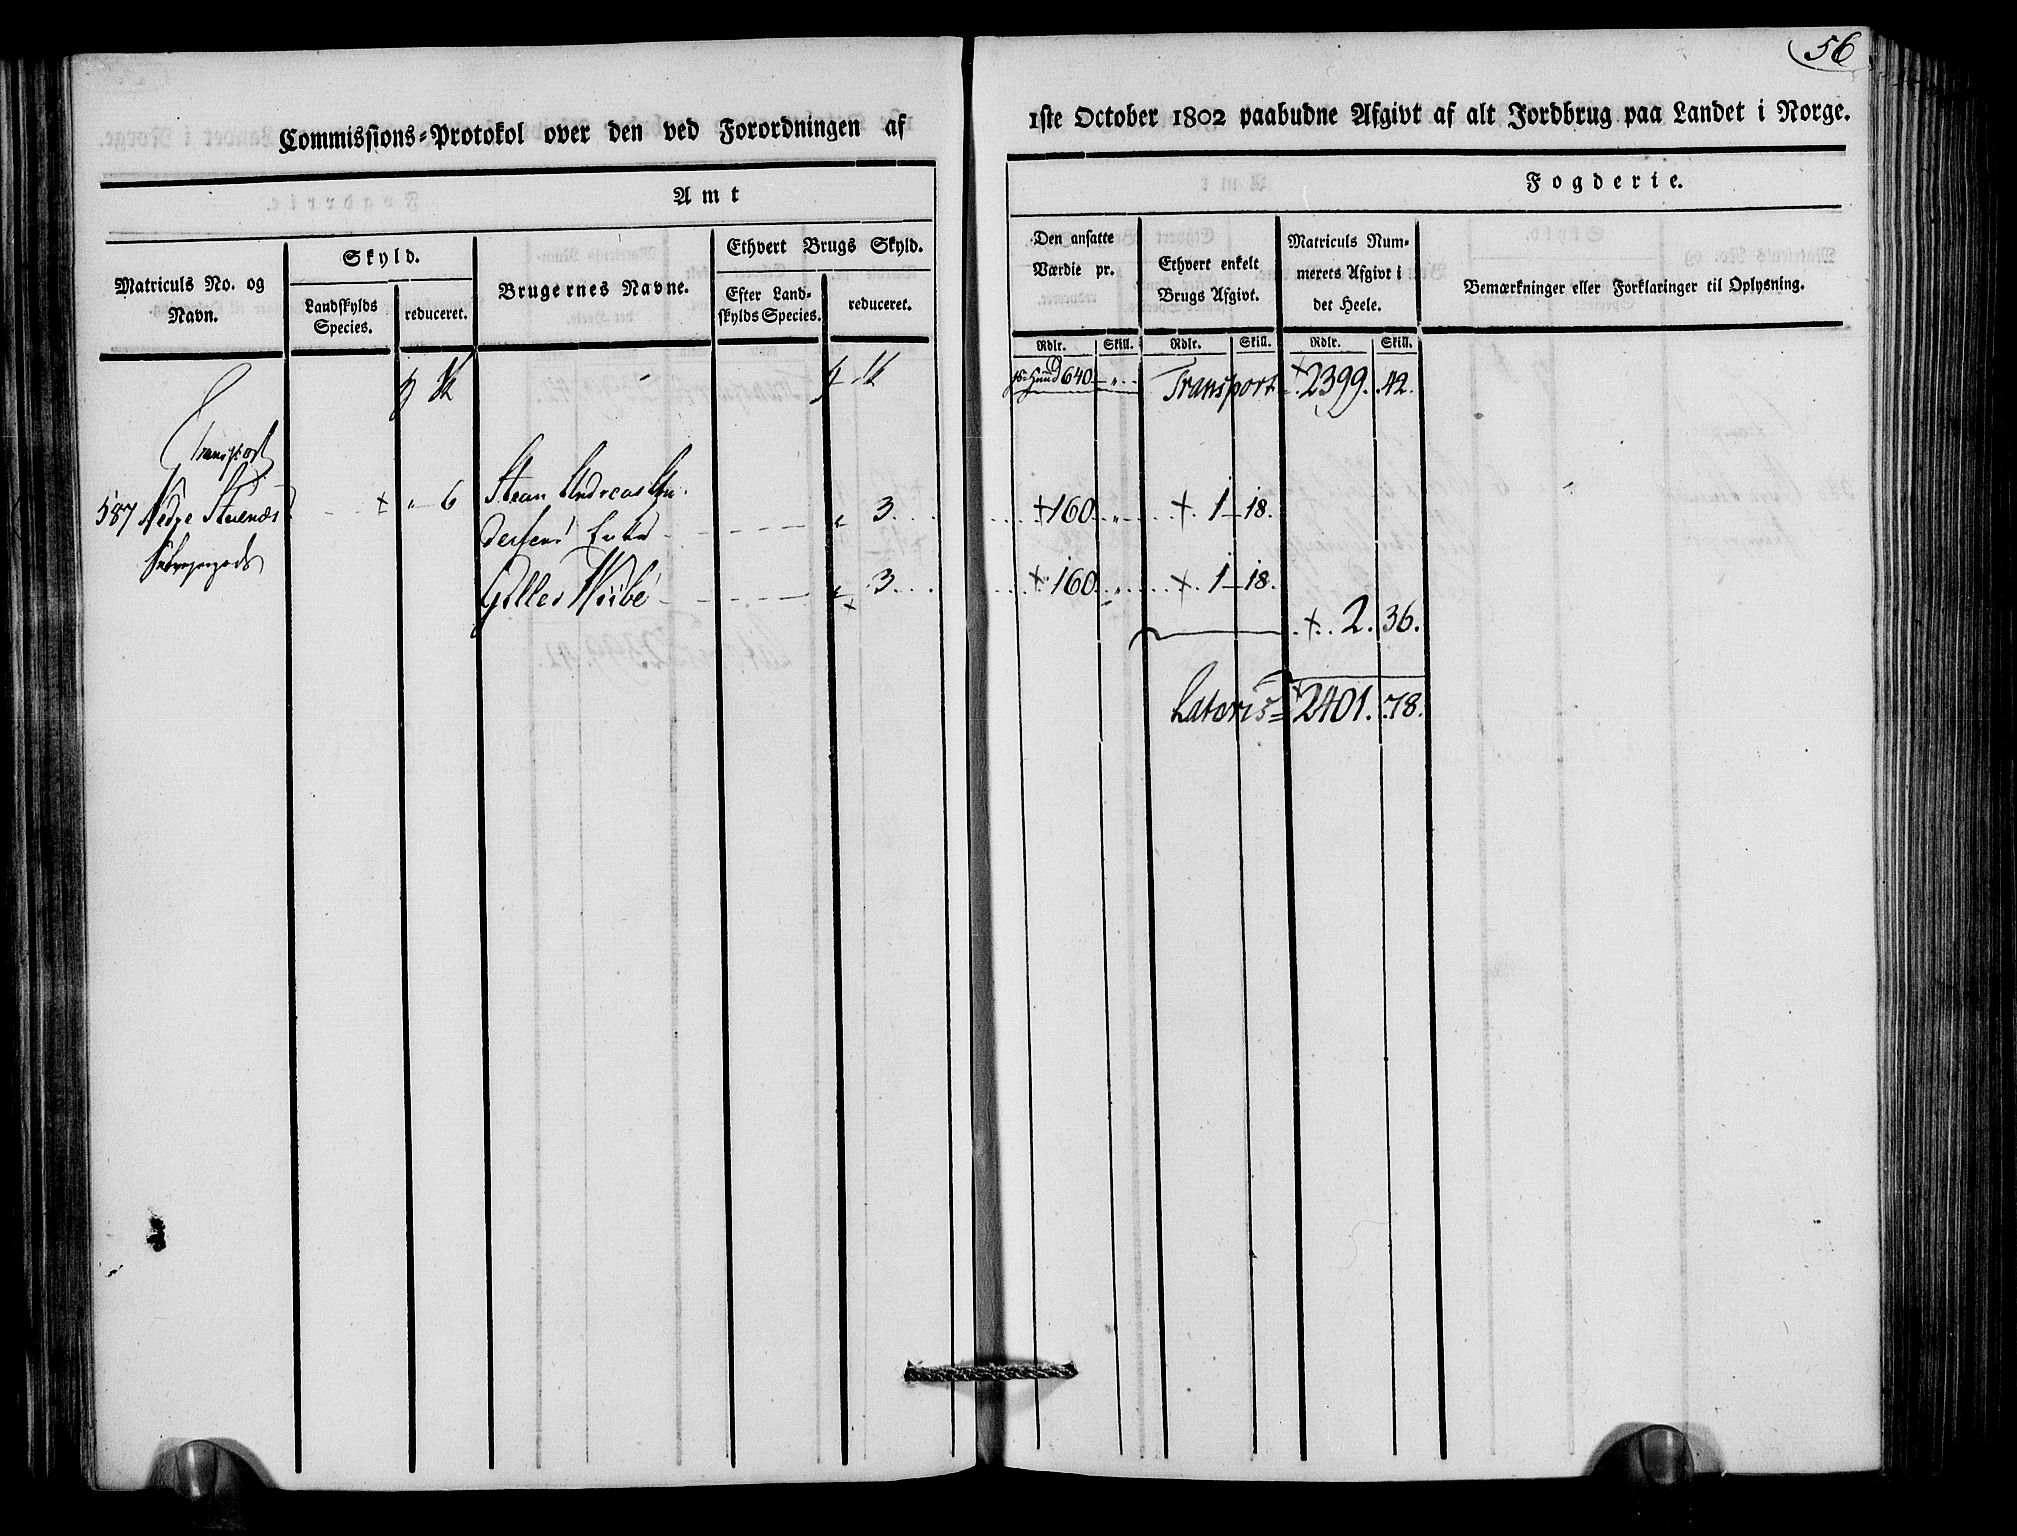 56
Commissions-Protokol over den ved Forordningen af 1ste October 1802 paabudne Afgivt af alt Jordbrug paa Landet i Norge.
Amt
Fogderie.
Matriculs No. og Navn.
Skyld.
Landskylds Species.
reduceret.
Brugernes Navne.
Ethvert Brugs Skyld.
Efter Landskylds Species.
reduceret.
Den ansatte Værdie pr.
Ethvert enkelt Brugs Afgivt.
Matriculs Nummerets Afgivt i det Heele.
Bemærkninger eller Forklaringer til Oplysning.
Rdlr. Skill. Rdlr. Skill. Rdlr. Skill.
640 Transport 2399. 42.
Transport
587 Nedre 6 3 160 1 18.
3 160 1 18.
2. 36.
Lateris 2401. 78.